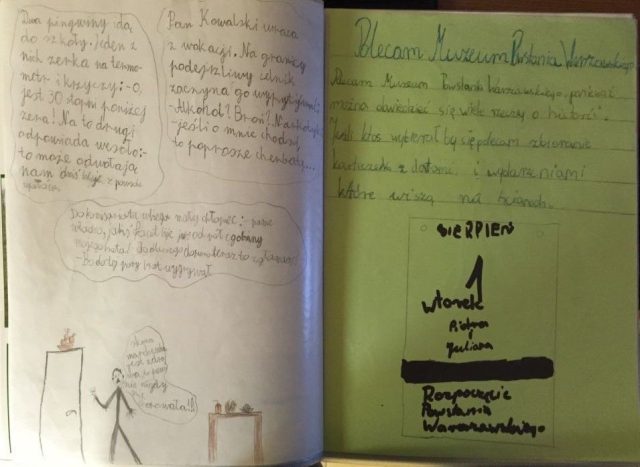 Dwa pingwiny idą
do szkoły. Jeden z
nich zerka na termo-
metr i krzyczy:-O,
jest 30 stopni poniżej
zera! Na to drugi
odpowiada wesoło:-
to może odwołają
nam dziś lekcje z powodu
Pan Kowalski wraca
z wakacji. Na granicy
podejrzliwy celnik
zaczyna go wypytywać:
-Alkohol? Broń? Narkotyki?
-jeśli o mnie chodzi,
to poproszę herbatę...
Do komisariatu wbiega mały chłopiec:- panie
władzo, jakiś facet bije się od pół godziny
-Bo do tej pory tata wygrywał
jest
nie nigdy
Polecam Muzeum Powstania Warszawskiego
Polecam Muzeum Powstania Warszawskiego, ponieważ
można dowiedzieć się wiele rzeczy o historii.
Jeśli ktoś wybierał by się polecam zbieranie
karteczek z datami i wydarzeniami
które wiszą na ścianach.
SIERPIEŃ
1
wtorek
Piotra
i
Juliana
Rozpoczęcie
Powstania
Warszawskiego